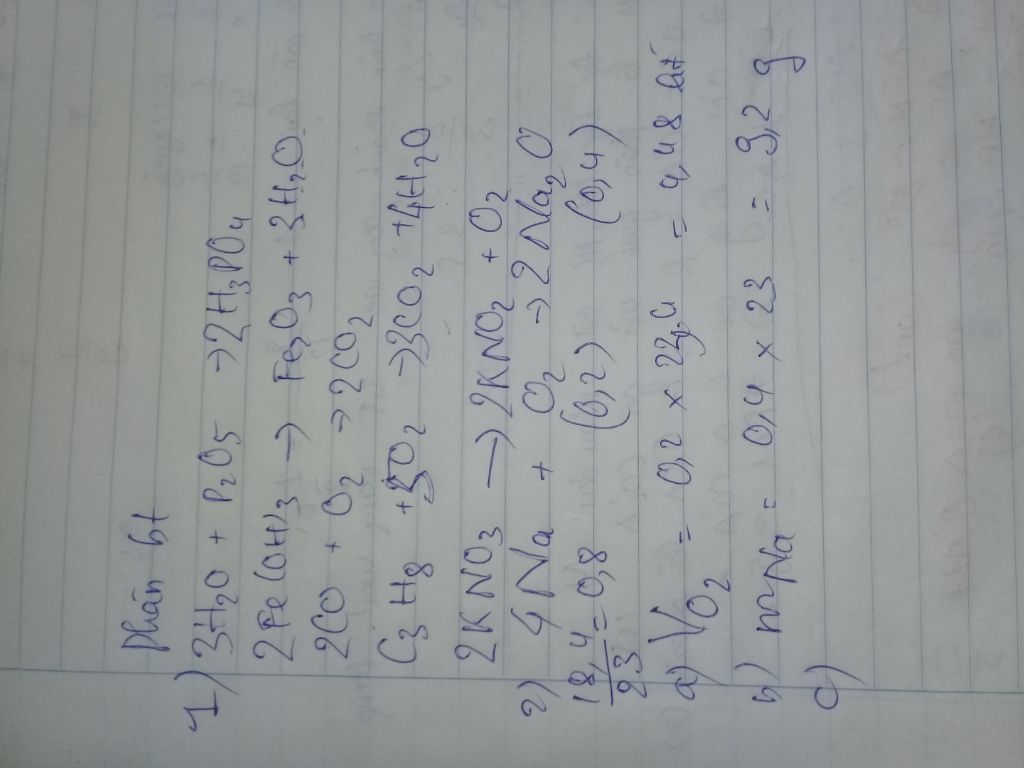 Phần bt
1) 3H₂O + P₂O₅ → 2H₃PO₄
2Fe(OH)₃ → Fe₂O₃ + 3H₂O
2CO + O₂ → 2CO₂
C₃H₈ + 5O₂ → 3CO₂ + 4H₂O
2KNO₃ → 2KNO₂ + O₂
2) 4Na + O₂ → 2Na₂O
18,4/23 = 0,8 (0,2) (0,4)
a) V O₂ = 0,2 × 22,4 = 4,48 lít
b) mNa = 0,4 × 23 = 9,2 g
c)